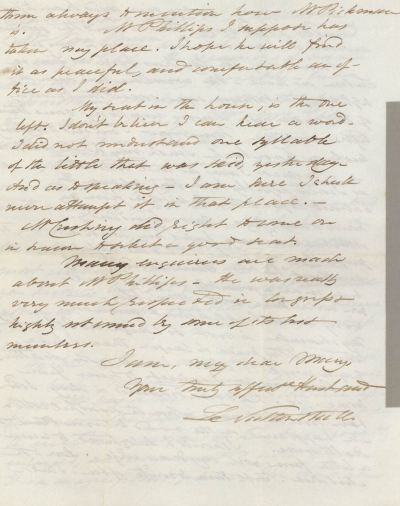 them always to mention how Mr Pickman
is. Mr Phillips I suppose has
taken my place. I hope he will find
it as peaceful, and comfortable an of-
fice as I did.
My seat in the house, is the one
left. I don't believe I can hear a word.
I did not understand one syllable
of the little that was said, yesterday.
And as to speaking - I am sure I shall
never attempt it in that place. -
Mr Cushing did right to come on
in season to obtain a good seat.
Many enquiries are made
about Mr Phillips - He was really
very much respected in Congress
highly esteemed by some of its best
members.
I am, my dear Mary
Your truly affecte Husband
L Saltonstall